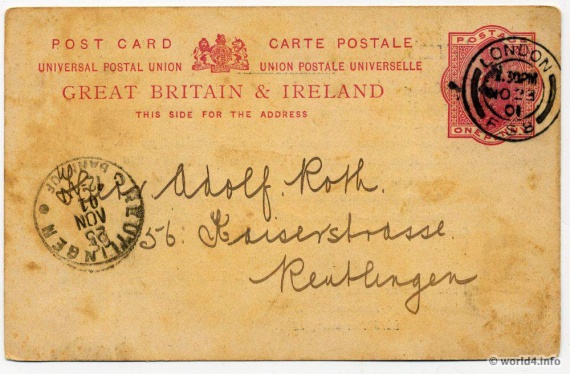 POST CARD CARTE POSTALE
UNIVERSAL POSTAL UNION UNION POSTALE UNIVERSELLE
GREAT BRITAIN & IRELAND
THIS SIDE FOR THE ADDRESS
POSTAGE
ONE PENNY
LONDON
NO 22
01
F.S
REUTLINGEN
25
NOV
01
BAHNHOF
Adolf Roth.
56. Kaiserstrasse.
Reutlingen
© world4.info